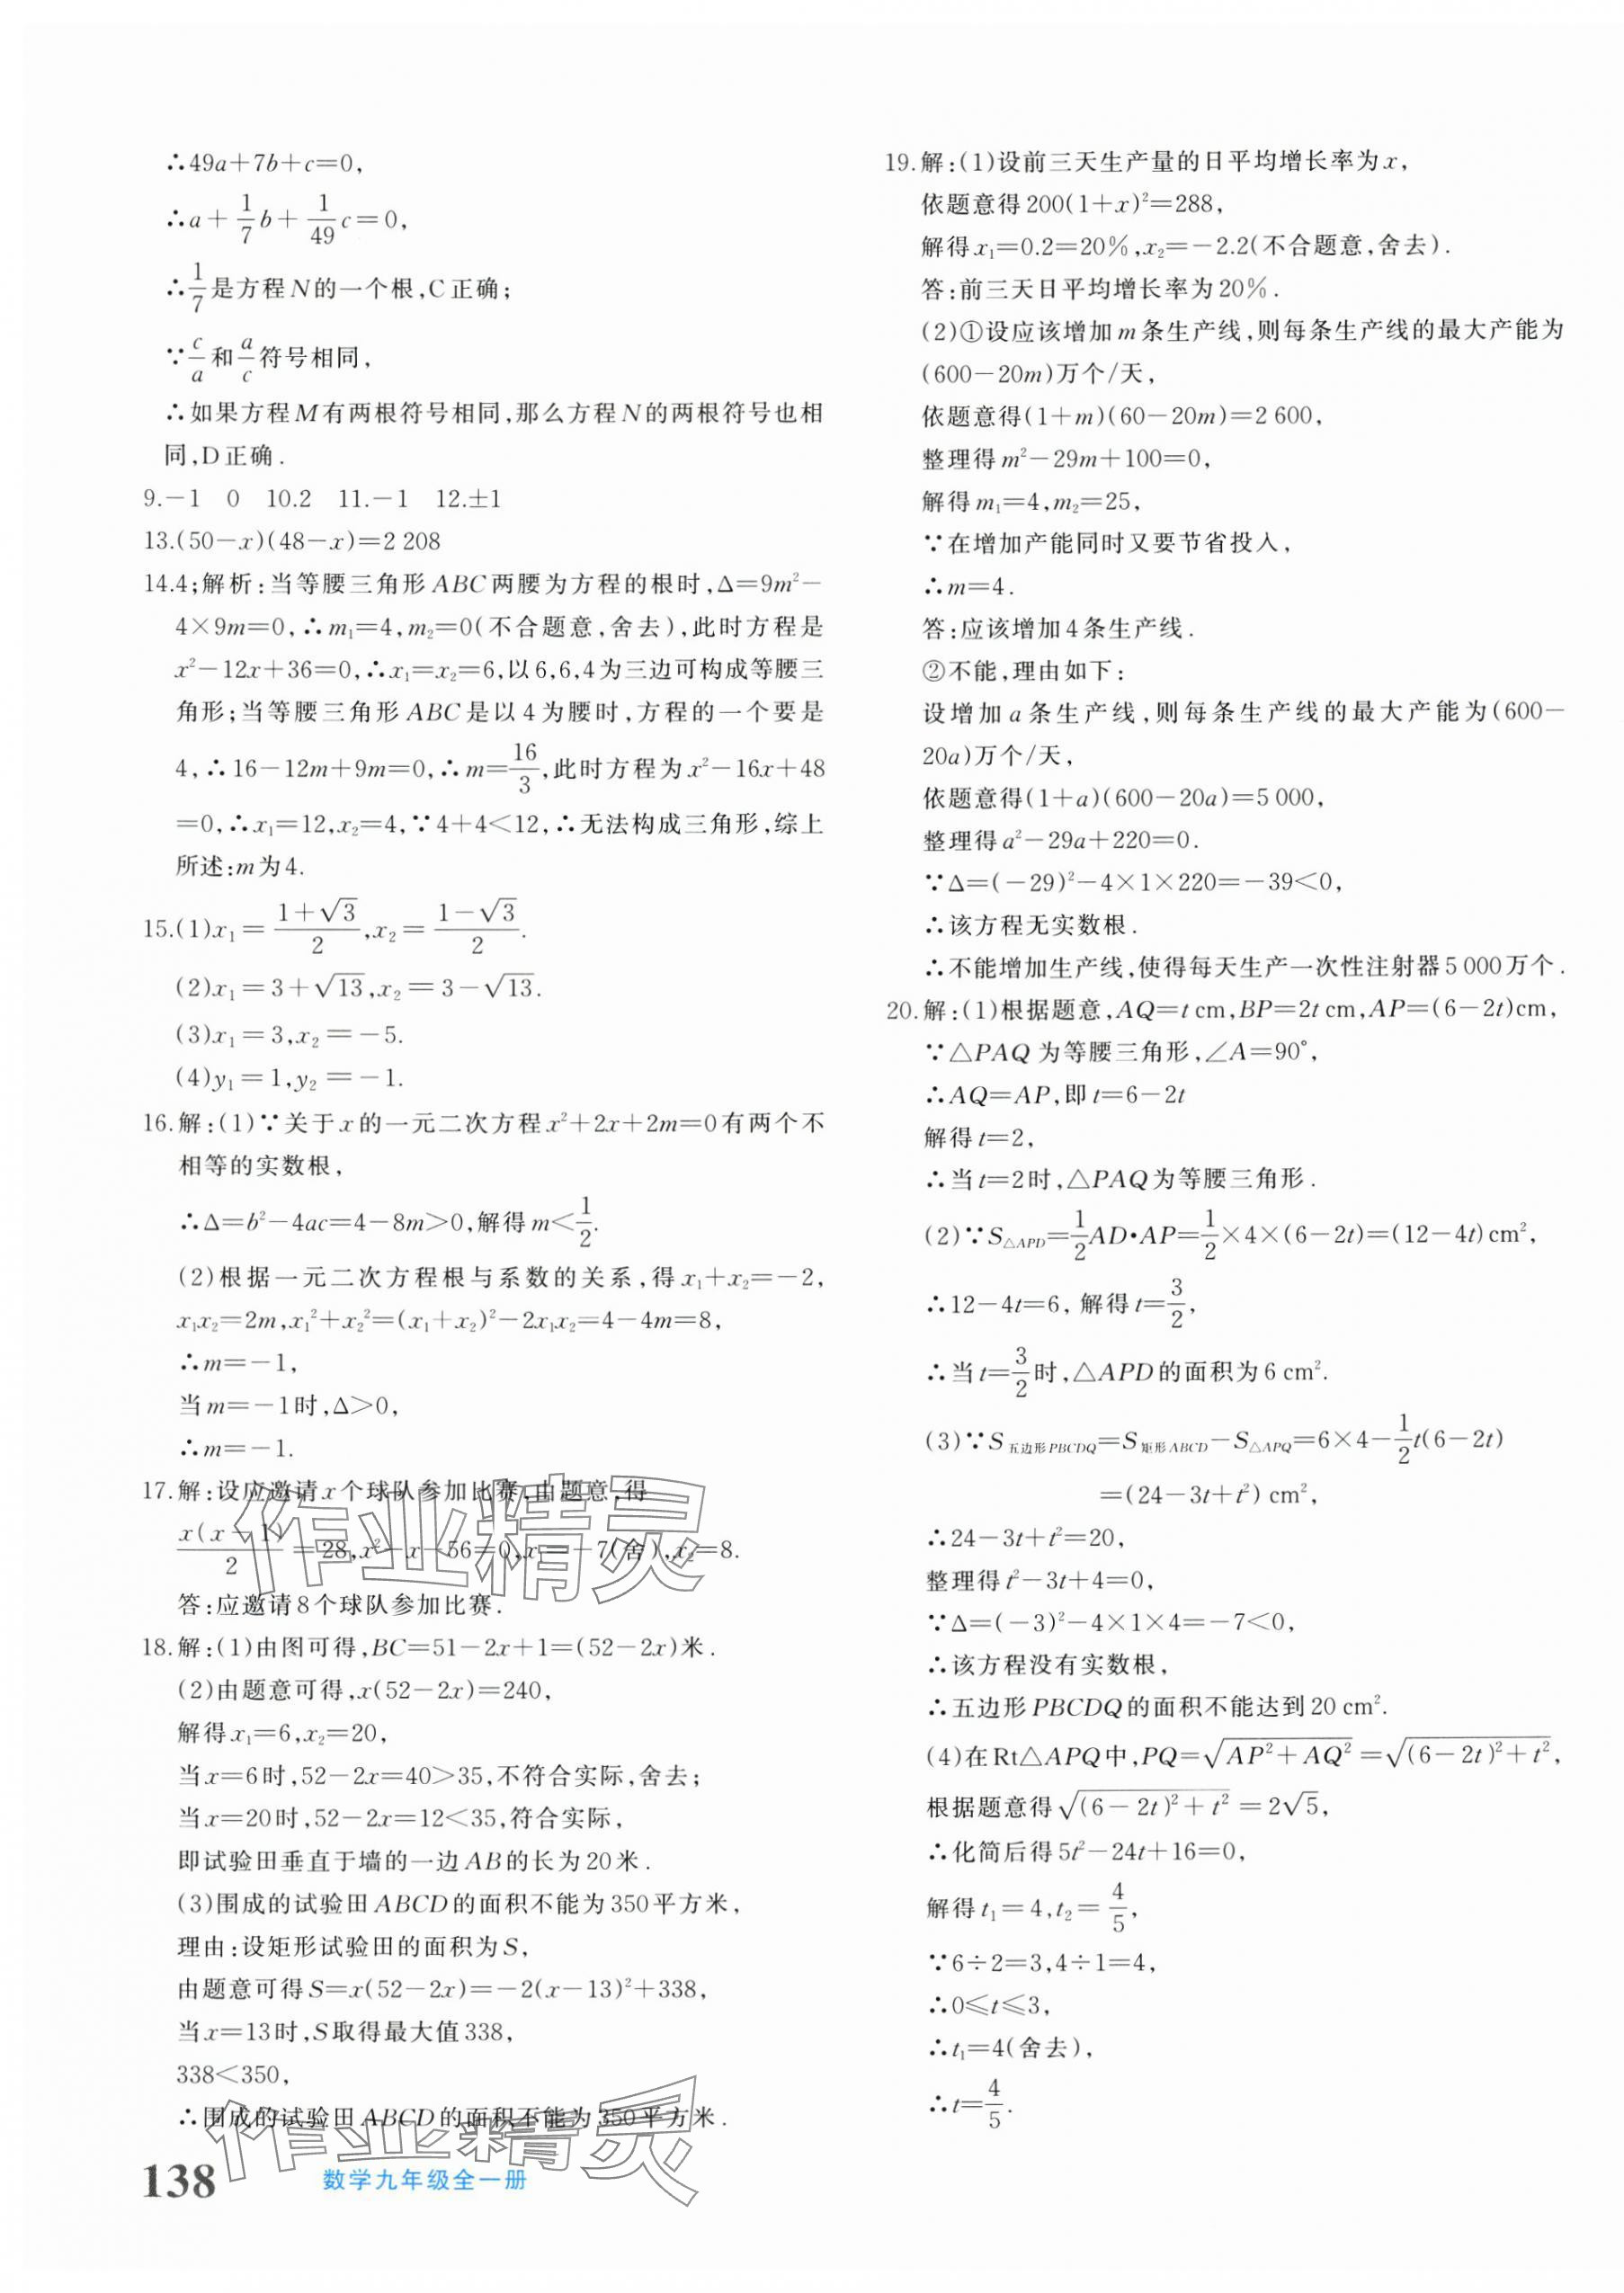 ∴49a+7b+c=0,
∴a+1/7b+1/49c=0,
∴1/7是方程N的一个根,C正确;
∵c/a和a/c符号相同,
∴如果方程M有两根符号相同,那么方程N的两根符号也相
同,D正确.
9.-1 0 10.2 11.-1 12.±1
13.(50-x)(48-x)=2 208
14.4;解析:当等腰三角形ABC两腰为方程的根时,Δ=9m²-
4×9m=0,∴m₁=4,m₂=0(不合题意,舍去),此时方程是
x²-12x+36=0,∴x₁=x₂=6,以6,6,4为三边可构成等腰三
角形;当等腰三角形ABC是以4为腰时,方程的一个要是
4,∴16-12m+9m=0,∴m=16/3,此时方程为x²-16x+48
=0,∴x₁=12,x₂=4,∵4+4<12,∴无法构成三角形,综上
所述:m为4.
15.(1)x₁=(1+√3)/2,x₂=(1-√3)/2.
(2)x₁=3+√13,x₂=3-√13.
(3)x₁=3,x₂=-5.
(4)y₁=1,y₂=-1.
16.解:(1)∵关于x的一元二次方程x²+2x+2m=0有两个不
相等的实数根,
∴Δ=b²-4ac=4-8m>0,解得m<1/2.
(2)根据一元二次方程根与系数的关系,得x₁+x₂=-2,
x₁x₂=2m,x₁²+x₂²=(x₁+x₂)²-2x₁x₂=4-4m=8,
∴m=-1,
当m=-1时,Δ>0,
∴m=-1.
17.解:设应邀请x个球队参加比赛,由题意,得
x(x-1)/2=28,x²-x-56=0,x₁=-7(舍),x₂=8.
答:应邀请8个球队参加比赛.
18.解:(1)由图可得,BC=51-2x+1=(52-2x)米.
(2)由题意可得,x(52-2x)=240,
解得x₁=6,x₂=20,
当x=6时,52-2x=40>35,不符合实际,舍去;
当x=20时,52-2x=12<35,符合实际,
即试验田垂直于墙的一边AB的长为20米.
(3)围成的试验田ABCD的面积不能为350平方米,
理由:设矩形试验田的面积为S,
由题意可得S=x(52-2x)=-2(x-13)²+338,
当x=13时,S取得最大值338,
338<350,
∴围成的试验田ABCD的面积不能为350平方米.
19.解:(1)设前三天生产量的日平均增长率为x,
依题意得200(1+x)²=288,
解得x₁=0.2=20%,x₂=-2.2(不合题意,舍去).
答:前三天日平均增长率为20%.
(2)①设应该增加m条生产线,则每条生产线的最大产能为
(600-20m)万个/天,
依题意得(1+m)(60-20m)=2 600,
整理得m²-29m+100=0,
解得m₁=4,m₂=25,
∵在增加产能同时又要节省投入,
∴m=4.
答:应该增加4条生产线.
②不能,理由如下:
设增加a条生产线,则每条生产线的最大产能为(600-
20a)万个/天,
依题意得(1+a)(600-20a)=5 000,
整理得a²-29a+220=0.
∵Δ=(-29)²-4×1×220=-39<0,
∴该方程无实数根.
∴不能增加生产线,使得每天生产一次性注射器5 000万个.
20.解:(1)根据题意,AQ=t cm,BP=2t cm,AP=(6-2t)cm,
∵△PAQ为等腰三角形,∠A=90°,
∴AQ=AP,即t=6-2t
解得t=2,
∴当t=2时,△PAQ为等腰三角形.
(2)∵S△APD=1/2AD•AP=1/2×4×(6-2t)=(12-4t)cm²,
∴12-4t=6,解得t=3/2,
∴当t=3/2时,△APD的面积为6 cm².
(3)∵S五边形PBCDQ=S矩形ABCD-S△APQ=6×4-1/2t(6-2t)
=(24-3t+t²) cm²,
∴24-3t+t²=20,
整理得t²-3t+4=0,
∵Δ=(-3)²-4×1×4=-7<0,
∴该方程没有实数根,
∴五边形PBCDQ的面积不能达到20 cm².
(4)在Rt△APQ中,PQ=√(AP²+AQ²)=√((6-2t)²+t²),
根据题意得√((6-2t)²+t²)=2√5,
∴化简后得5t²-24t+16=0,
解得t₁=4,t₂=4/5,
∵6÷2=3,4÷1=4,
∴0≤t≤3,
∴t₁=4(舍去),
∴t=4/5.
作业精灵
作业精灵
138 数学九年级全一册